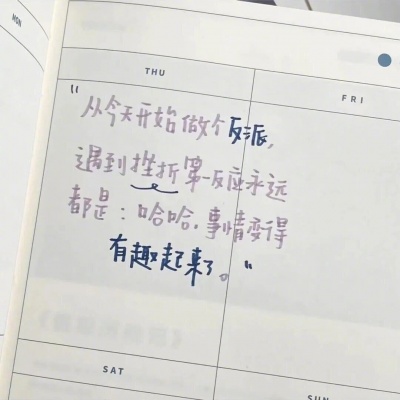 MON
THU
FRI
“从今天开始做个反派,
遇到挫折第一反应永远
都是：哈哈.事情变得
有趣起来了。“
SAT
SUN